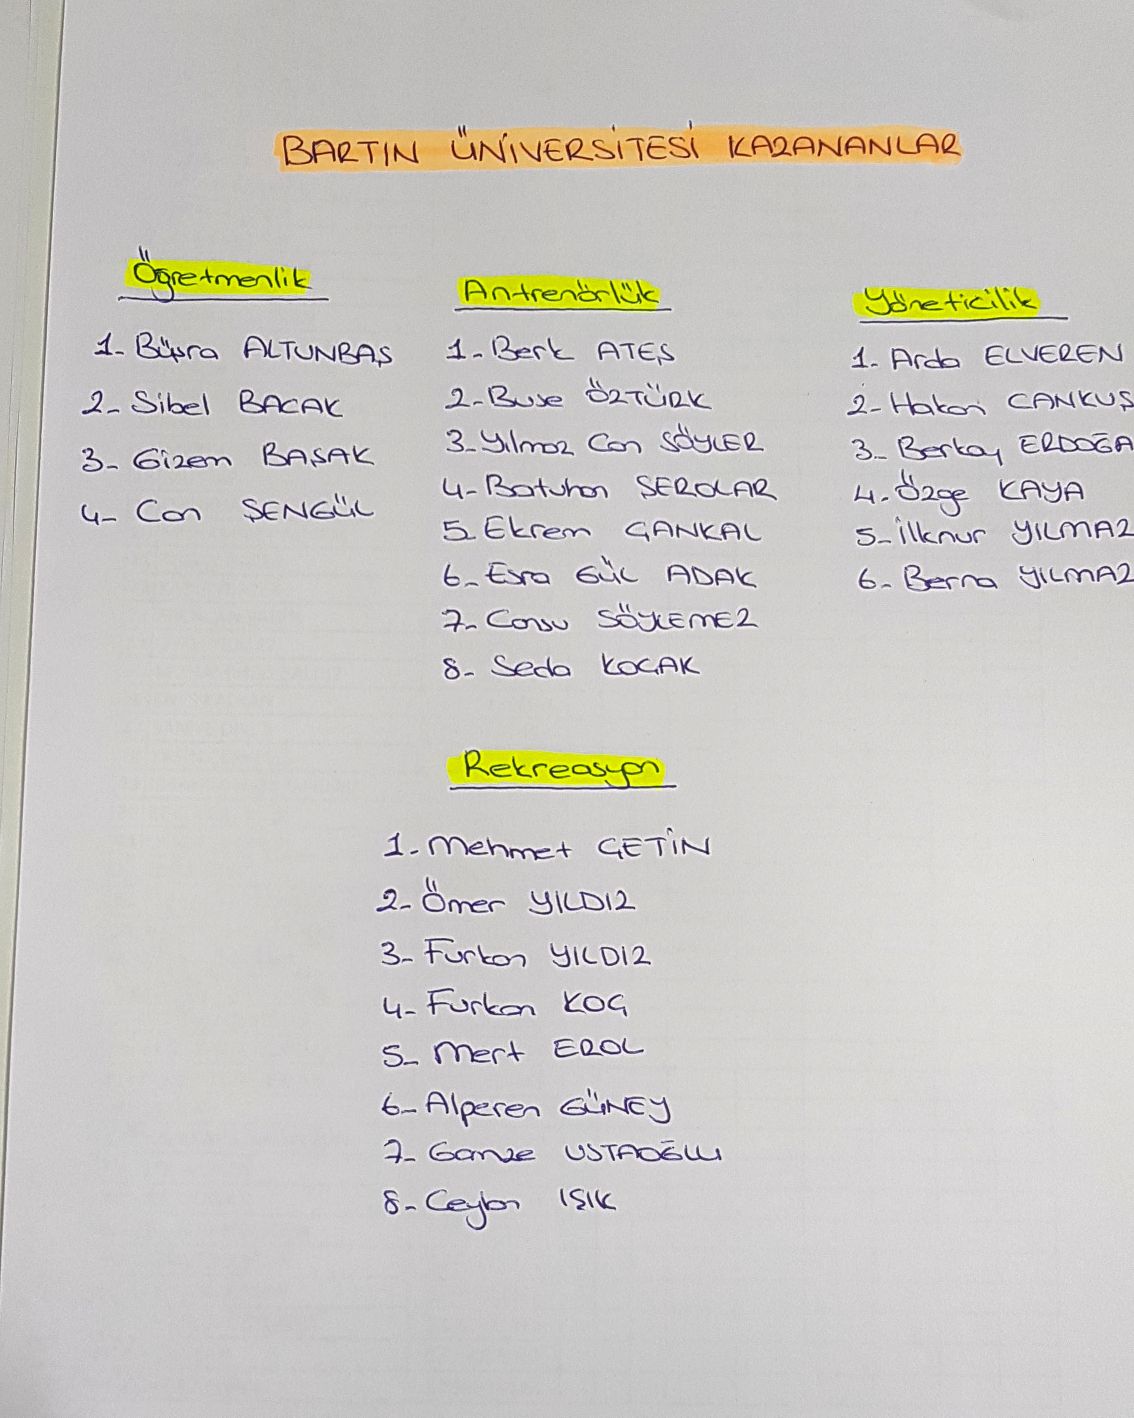 BARTIN ÜNİVERSİTESİ KAZANANLAR
Öğretmenlik
1- Büşra ALTUNBAŞ
2- Sibel BACAK
3- Gizem BAŞAK
4- Can ŞENGÜL
Antrenörlük
1- Berk ATEŞ
2- Buse ÖZTÜRK
3- Yılmaz Can SÖYLER
4- Batuhan SEROLAR
5- Ekrem ÇANKAL
6- Esra GÜL ADAK
7- Cansu SÖYLEMEZ
8- Seda KOÇAK
Yöneticilik
1- Arda ELVEREN
2- Hakan CANKUŞ
3- Berkay ERDOĞA
4- Özge KAYA
5- İlknur YILMAZ
6- Berna YILMAZ
Rekreasyon
1- Mehmet ÇETİN
2- Ömer YILDIZ
3- Furkan YILDIZ
4- Furkan KOÇ
5- Mert EROL
6- Alperen GÜNEY
7- Gamze USTAOĞLU
8- Ceylan IŞIK